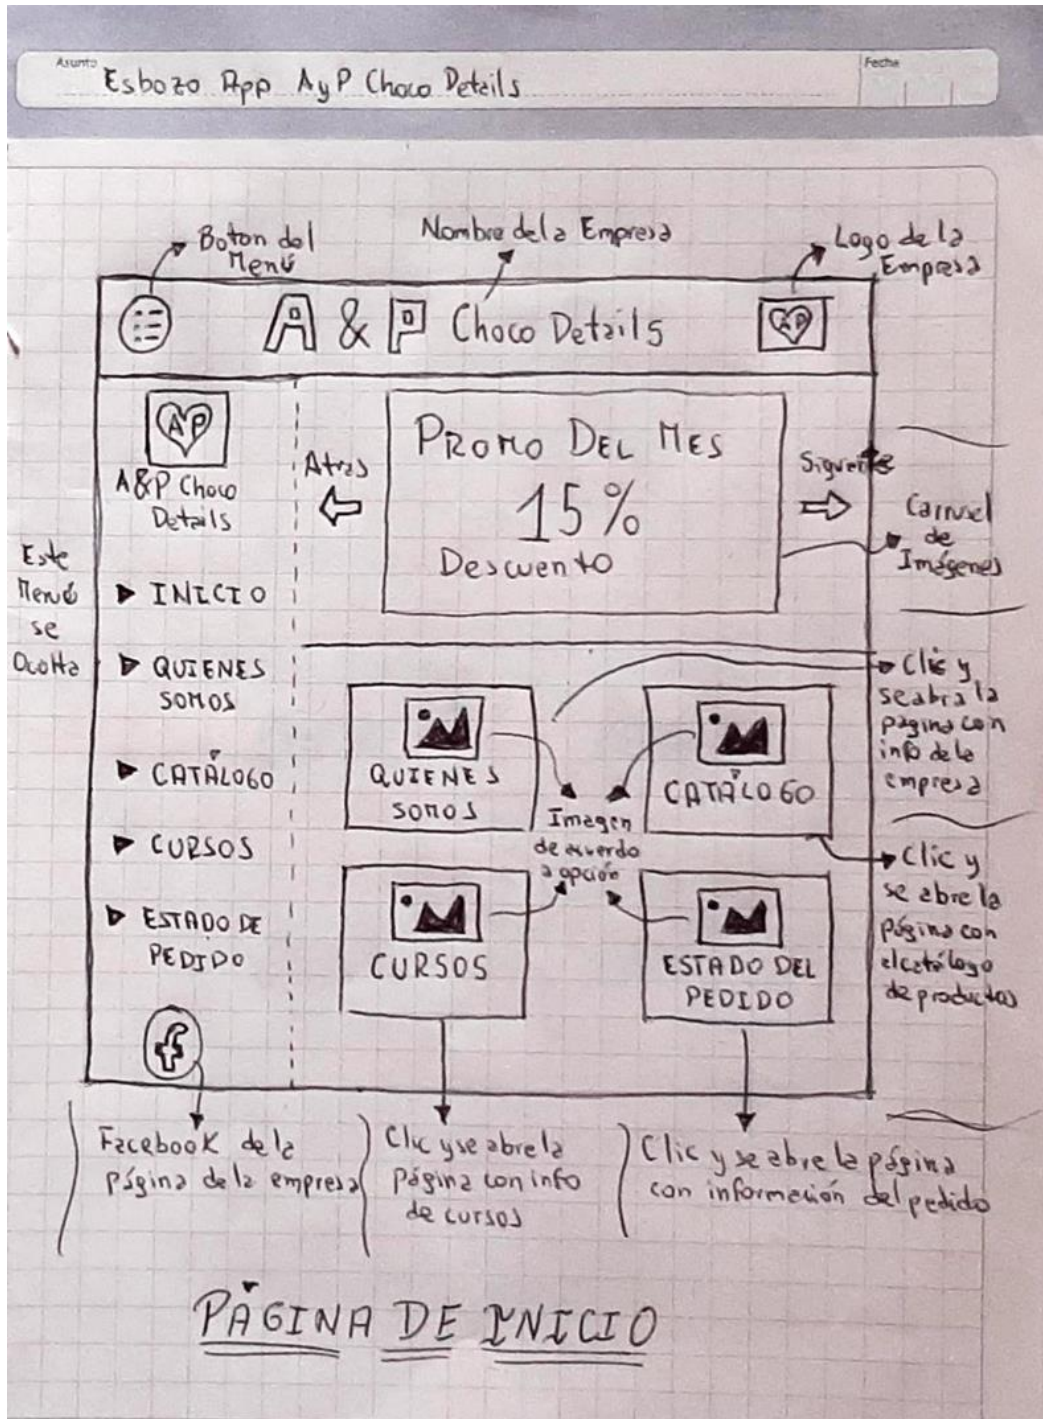 Asunto
Esbozo App AyP Choco Details
Fecha
Boton del
Menú
Nombre de la Empresa
Logo de la
Empresa
A & P Choco Details
AP
AP
A&P Choco
Details
Este
Menú
se
Oculta
INICIO
QUIENES
SOMOS
CATÁLOGO
CURSOS
ESTADO DE
PEDIDO
f
Atras
PROMO DEL MES
15%
Descuento
Siguiente
Carrusel
de
Imágenes
QUIENES
SOMOS
CATÁLOGO
Imagen
de acuerdo
a opción
CURSOS
ESTADO DEL
PEDIDO
Clic y
se abra la
página con
info de la
empresa
Clic y
se abre la
página con
el catálogo
de productos
Facebook de la
página de la empresa
Clic y se abre la
página con info
de cursos
Clic y se abre la página
con información del pedido
PÁGINA DE INICIO